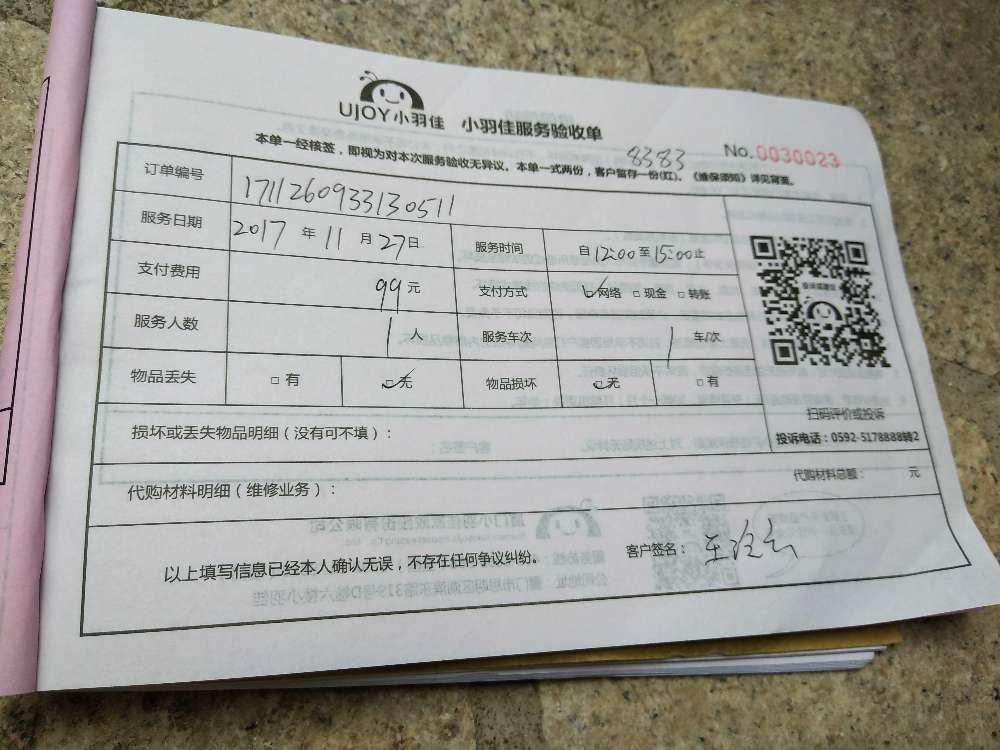 UJOY小羽佳 小羽佳服务验收单
8383
No.0030023
本单一经核签，即视为对本次服务验收无异议。本单一式两份，客户暂存一份(红)。《维保须知》详见背面。
订单编号 1711260933130511
服务日期 2017 年 11 月 27 日 服务时间 自 12:00 至 15:00 止
支付费用 99 元 支付方式 ☑网络 □现金 □转账
服务人数 1 人 服务车次 1 车/次
物品丢失 □有 ☑无 物品损坏 ☑无 □有
扫码评价或投诉
投诉电话：0592-5178888转2
损坏或丢失物品明细（没有可不填）：
代购材料明细（维修业务）： 代购材料总额： 元
以上填写信息已经本人确认无误，不存在任何争议纠纷。 客户签名：